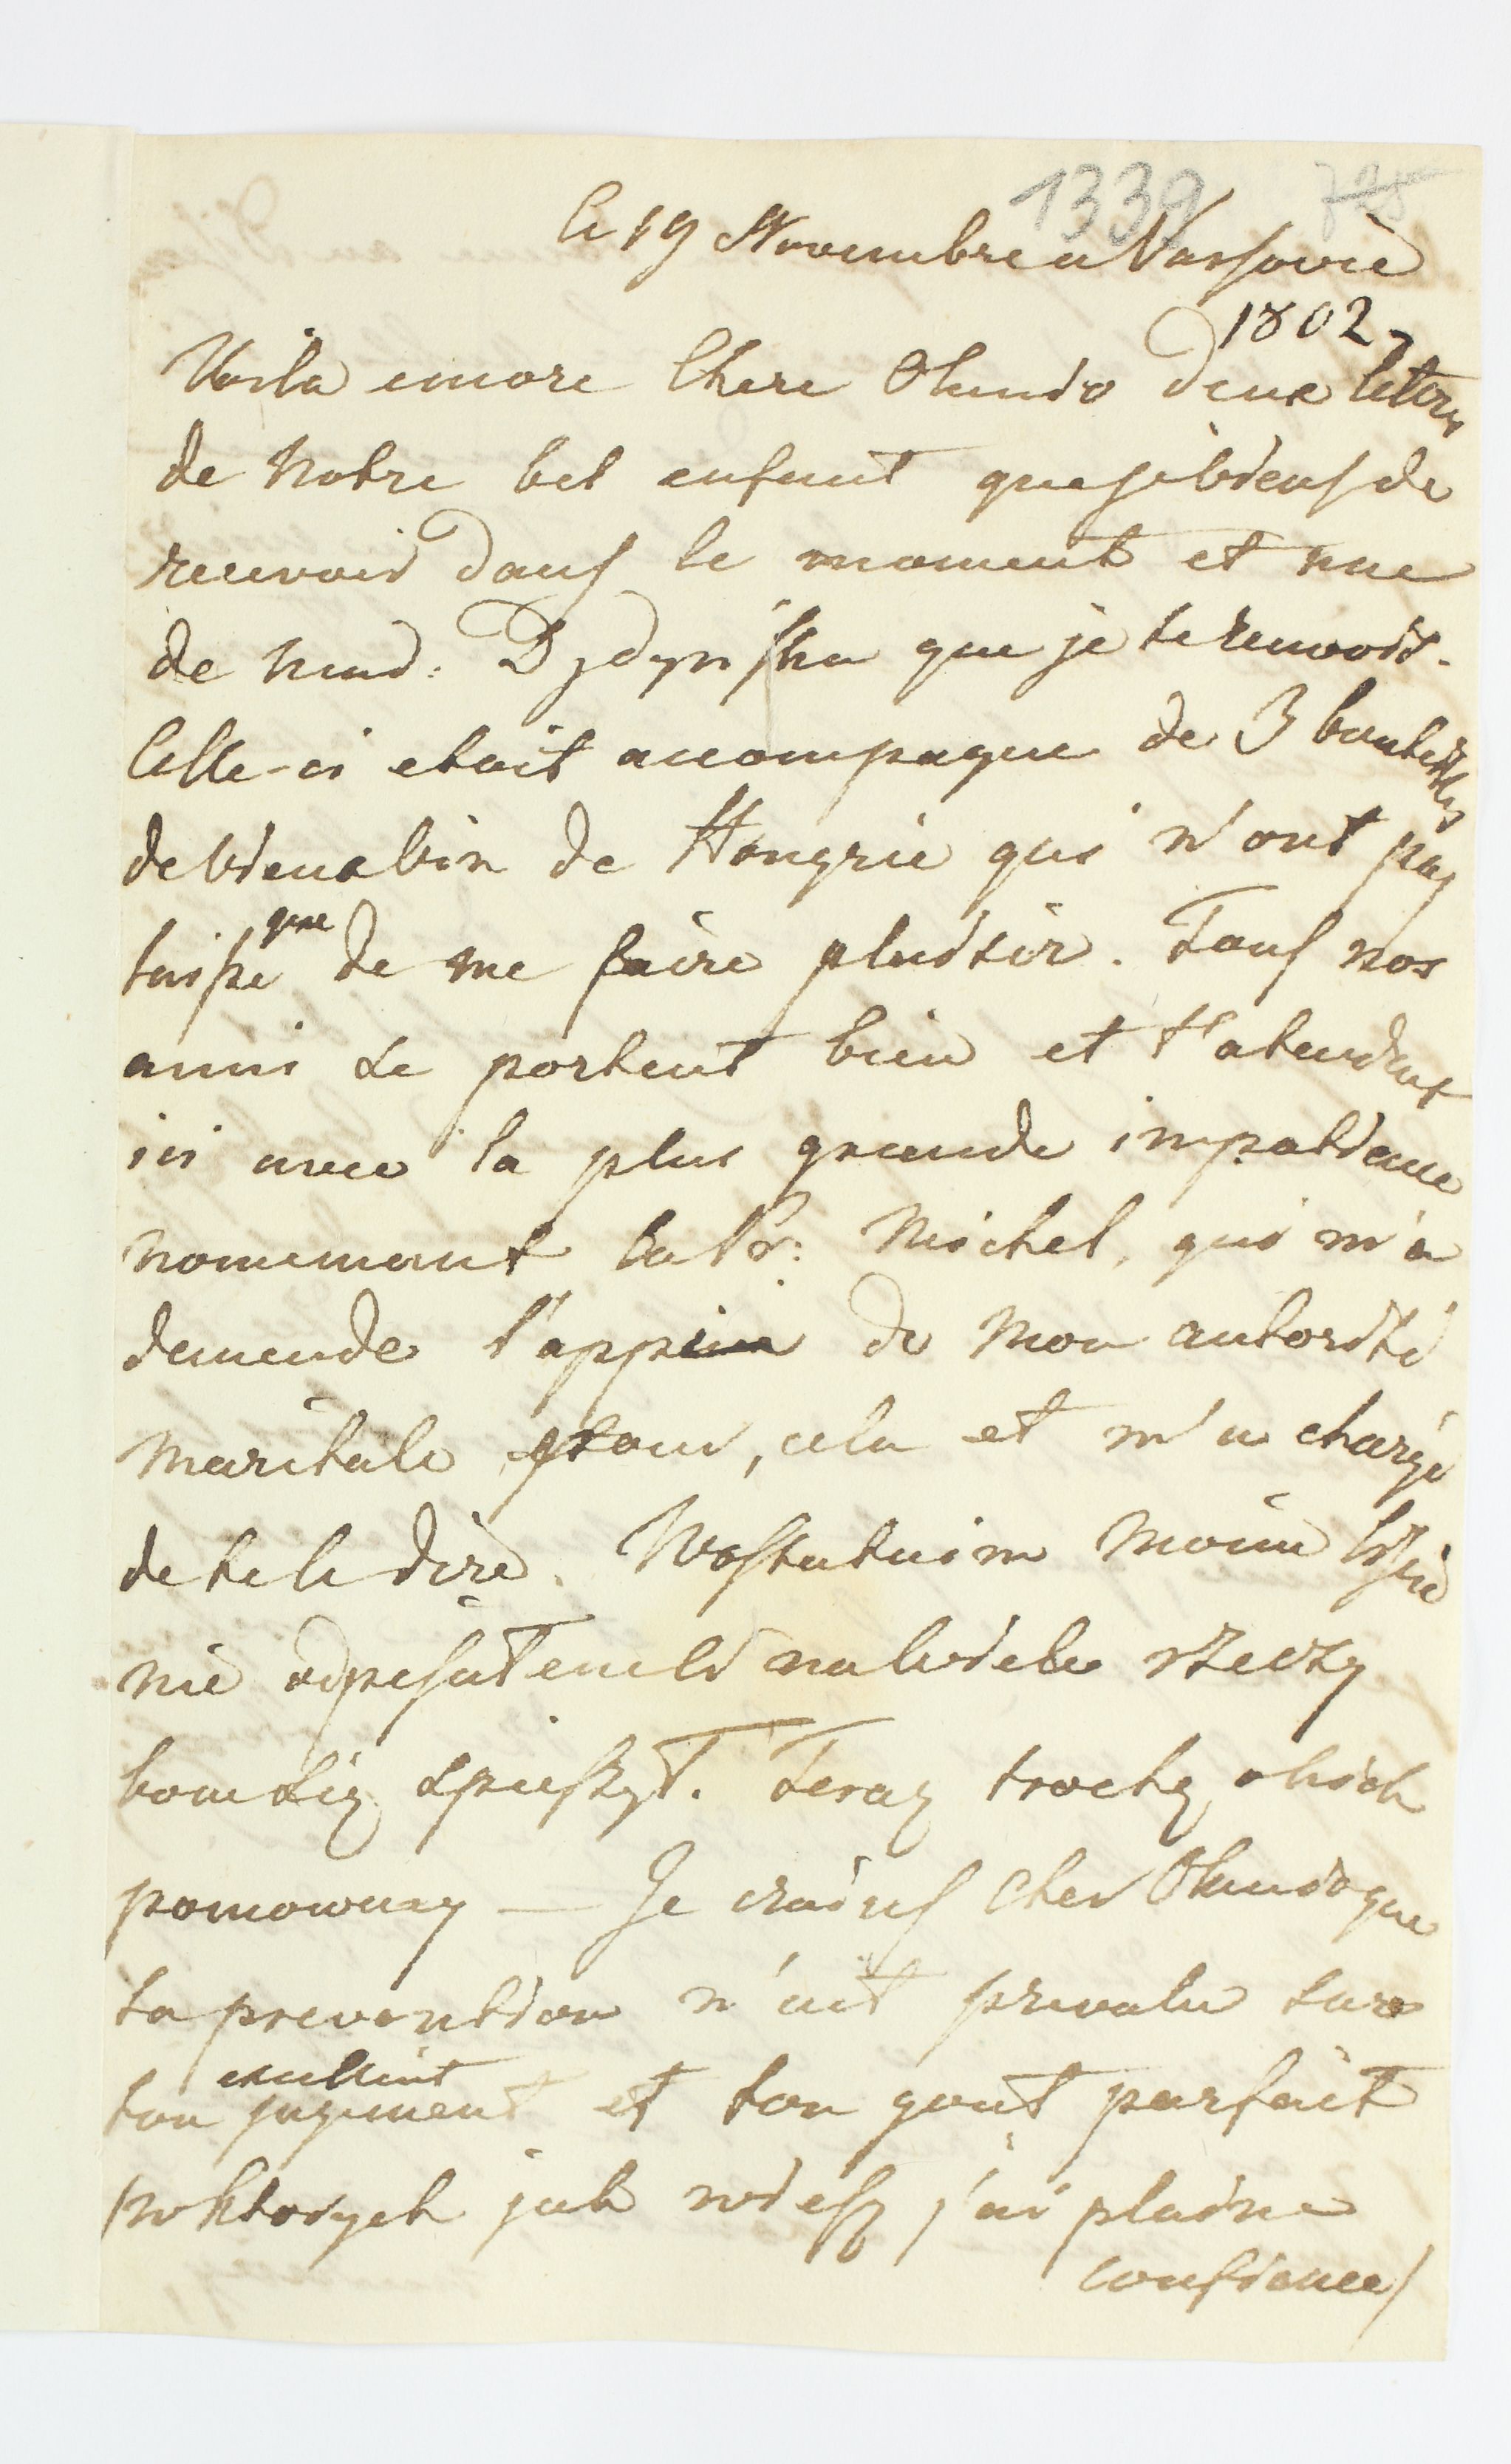 1339 728
le 19 Novembre a Varsovie
1802
Voila encore Chere Olesia deux letres
de notre bel enfant que je viens de
recevoir dans le moment et une
de mad: Dzdynska que je te renvois.
Celle-ci etoit accompagne de 3 bouteilles
de vieux vin de Hongrie qui n'ont pas
laisse que de me faire plaisir. Tous nos
amis se portent bien et t'atendent
ici avec la plus grande impatience
nomement Michel, qui m'a
demende l'appui de mon autorité
maritale pour, cela et m'a chargé
de te le dire. moim
nie odpisał en ci na wiele rzeczy
bom się spieszył. Teraz trochę o nich
pomowmy — Je crains Cher que
ta prevention n'ait prevalu sur
ton excellent jugement et ton gout parfait
/w ktorych jak wiesz j'ai plaine
confiance/